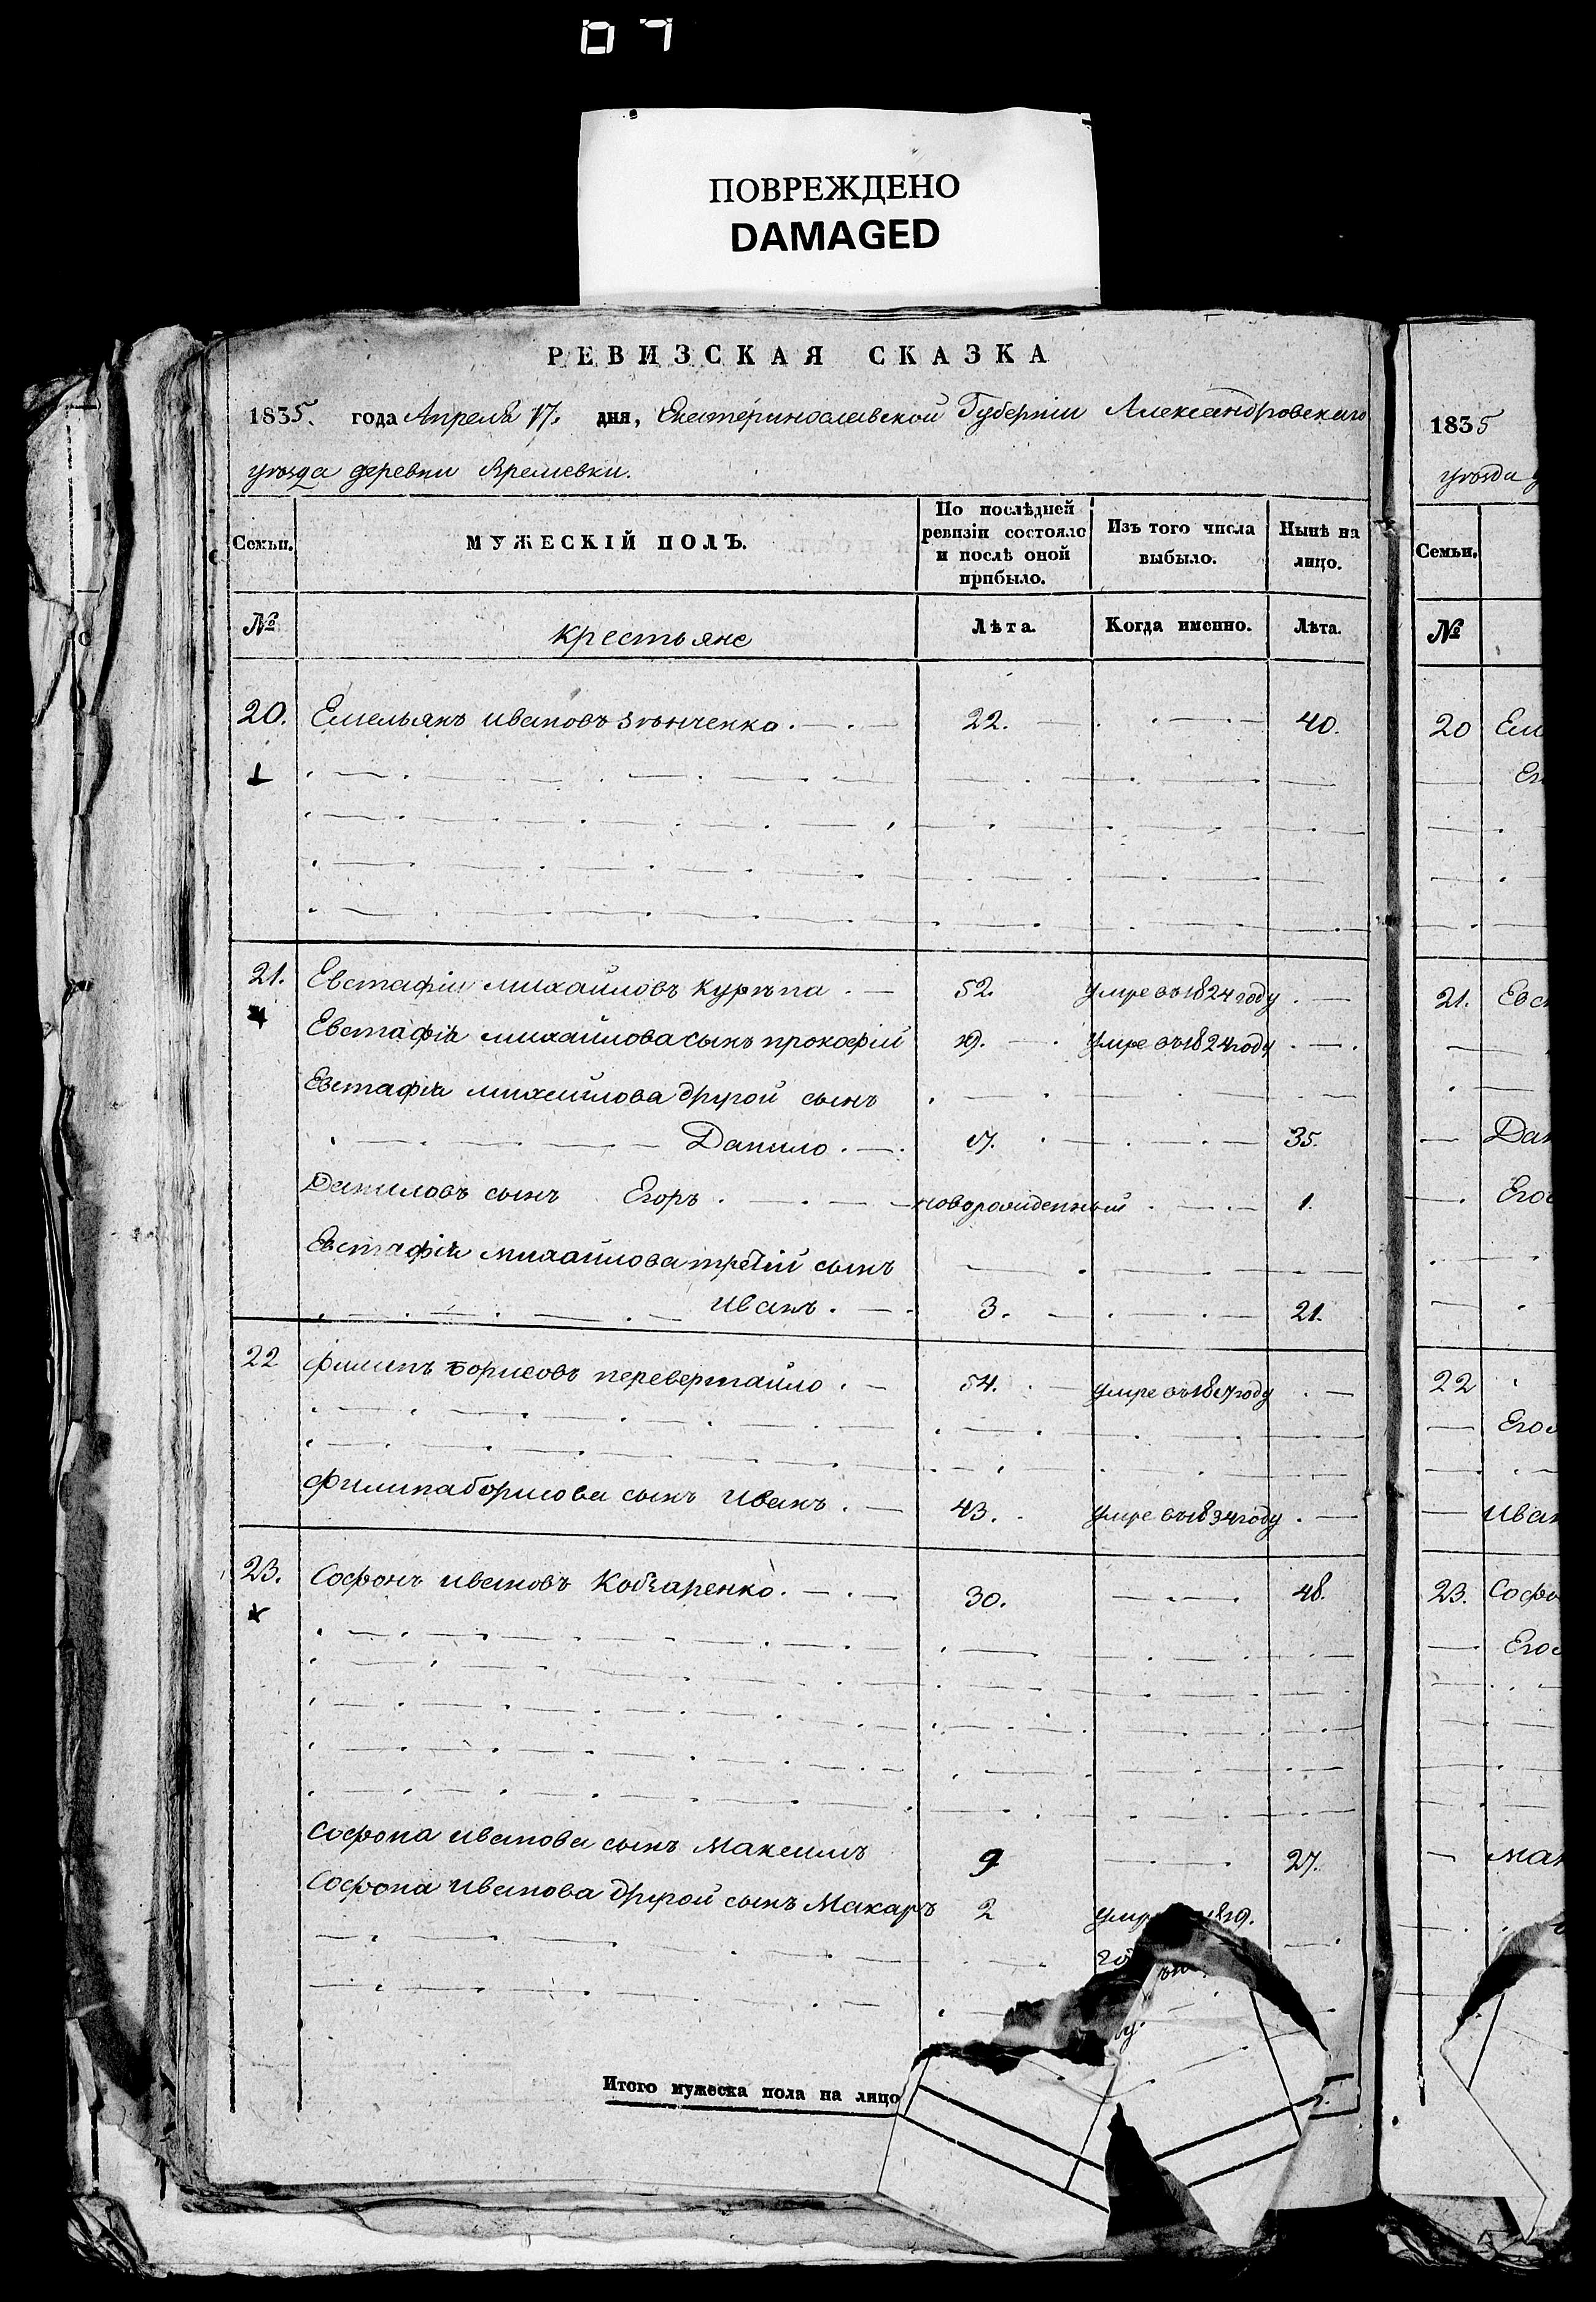 ПОВРЕЖДЕНО
DAMAGED
РЕВИЗСКАЯ СКАЗКА
1835. года Апреля 17. дня, Екатеринославской Губернии Александровскаго
уѣзда деревни Яремевки.
Семьи. МУЖЕСКІЙ ПОЛЪ. По послѣдней ревизіи состояло и послѣ оной прибыло. Изъ того числа выбыло. Нынѣ на лицо.
№ крестьяне Лѣта. Когда именно. Лѣта.
20. Емельянъ ивановъ зѣнченко. 22. 40.
21. Евстафій михайловъ курѣпа. 52. умре въ 1824 году.
Евстафія михайлова сынъ прокофій 19. умре въ 1824 году.
Евстафія михайлова другой сынъ
Данило. 17. 35.
Даниловъ сынъ Егоръ. новорожденный 1.
Евстафія михайлова третій сынъ
иванъ. 3. 21.
22 филипъ борисовъ перевертайло. 54. умре въ 1817 году
филипа борисова сынъ иванъ. 43. умре въ 1834 году.
23. софонъ ивановъ Кобзаренко. 30. 48.
софона иванова сынъ максимъ 9 27.
софона иванова другой сынъ Макаръ 2 умре 1819.
Итого мужеска пола на лицо
1835
уѣзда
Семьи.
№
20
21.
22
23.